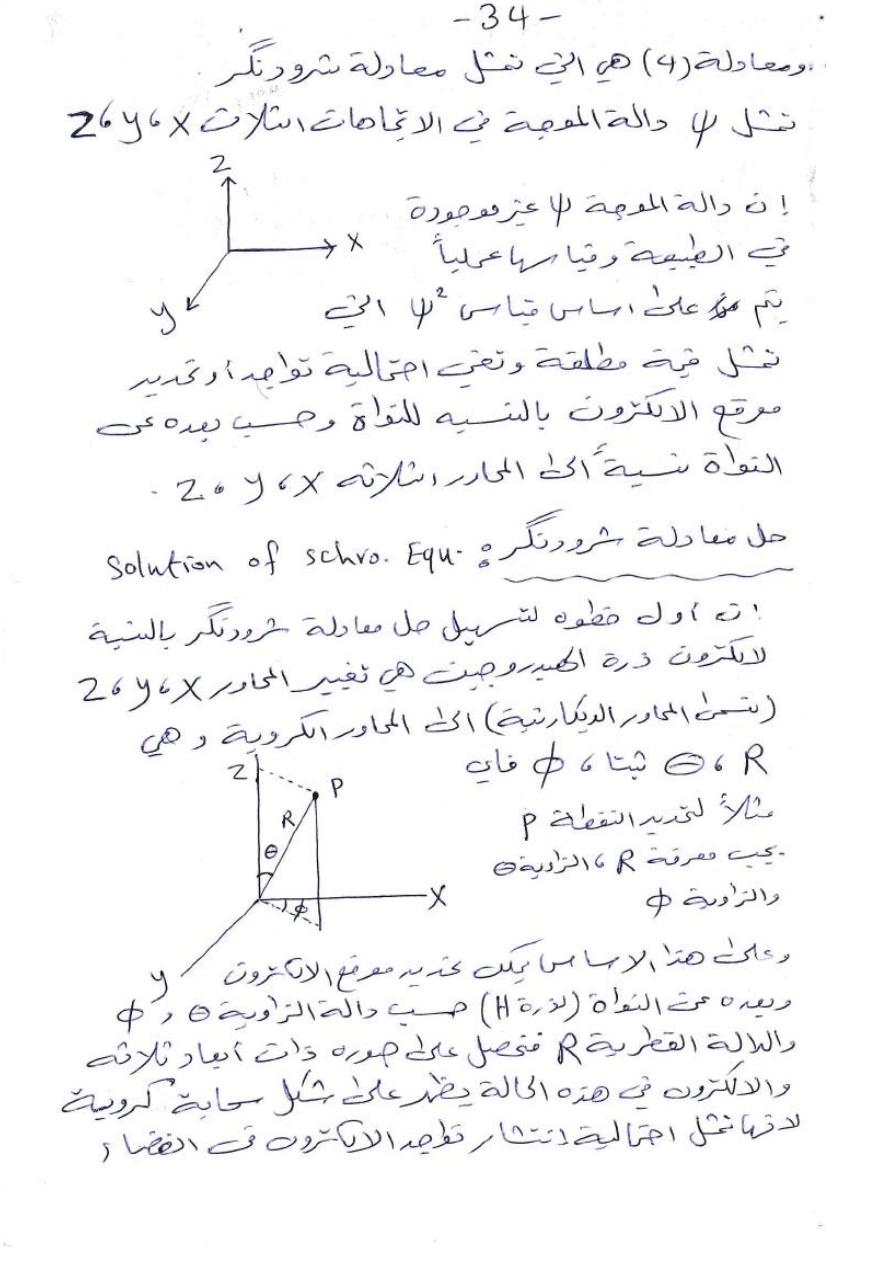 -34-
ومعادلة (4) هي التي تمثل معادلة شرودنگر
تمثل ψ دالة الموجة في الاتجاهات الثلاث Z، y، X
Z
X
y
إن دالة الموجة ψ غير موجودة
في الطبيعة وقياسها عملياً
يتم على اساس قياس ψ² التي
تمثل قيمة مطلقة وتعني احتمالية تواجد أو تحديد
موقع الالكترون بالنسبه للنواة وحسب بعده عن
النواة نسبةً الى المحاور الثلاثه Z، y، X .
حل معادلة شرودنگر: Solution of schro. Equ.
إن أول خطوه لتسهيل حل معادلة شرودنگر بالنسبة
لالكترون ذرة الهيدروجين هي تغيير المحاور Z، y، X
(تسمى المحاور الديكارتية) الى المحاور الكروية وهي
R، Θ ثيتا، ϕ فاي
Z
P
R
θ
ϕ
X
y
مثلاً لتحديد النقطة P
يجب معرفة R، الزاوية Θ
والزاوية ϕ
وعلى هذا الاساس يمكن تحديد موقع الالكترون
وبعده عن النواة (لذرة H) حسب دالة الزاوية Θ و ϕ
والدالة القطرية R فنحصل على صوره ذات أبعاد ثلاثه
والالكترون في هذه الحالة يظهر على شكل سحابة كروية
لانها تمثل احتمالية انتشار تواجد الالكترون في الفضاء